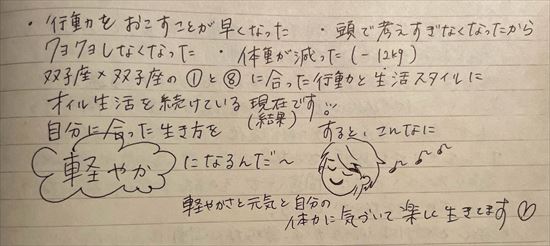 ・行動をおこすことが早くなった ・頭で考えすぎなくなったから
クヨクヨしなくなった ・体重が減った(-12kg)
双子座×双子座の①と⑧に合った行動と生活スタイルに
オイル生活を続けている現在です!!
(結果)
自分に合った生き方を すると、こんなに
軽やか になるんだ〜
軽やかさと元気と自分の
体力に気づいて楽しく生きてます